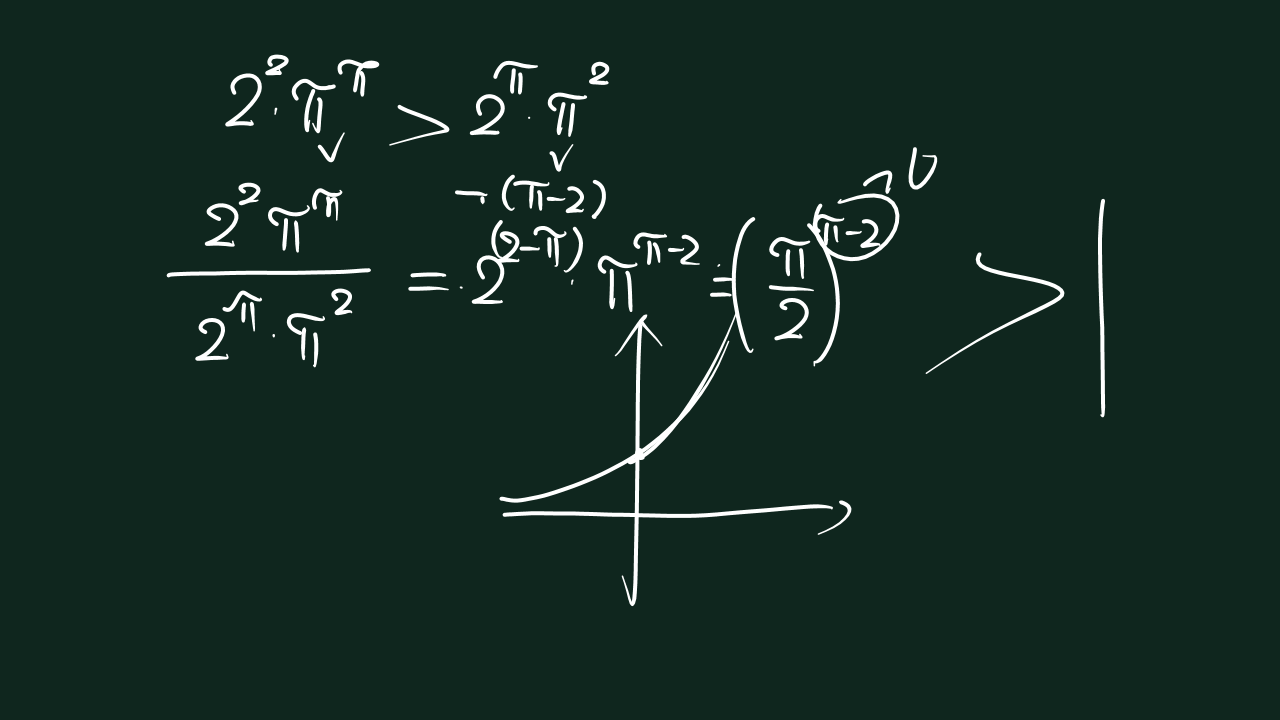 2² · π^π > 2^π · π²
(2² π^π)/(2^π · π²) = 2^(2-π) · π^(π-2) = (π/2)^(π-2) > 1
-(π-2)
> 0